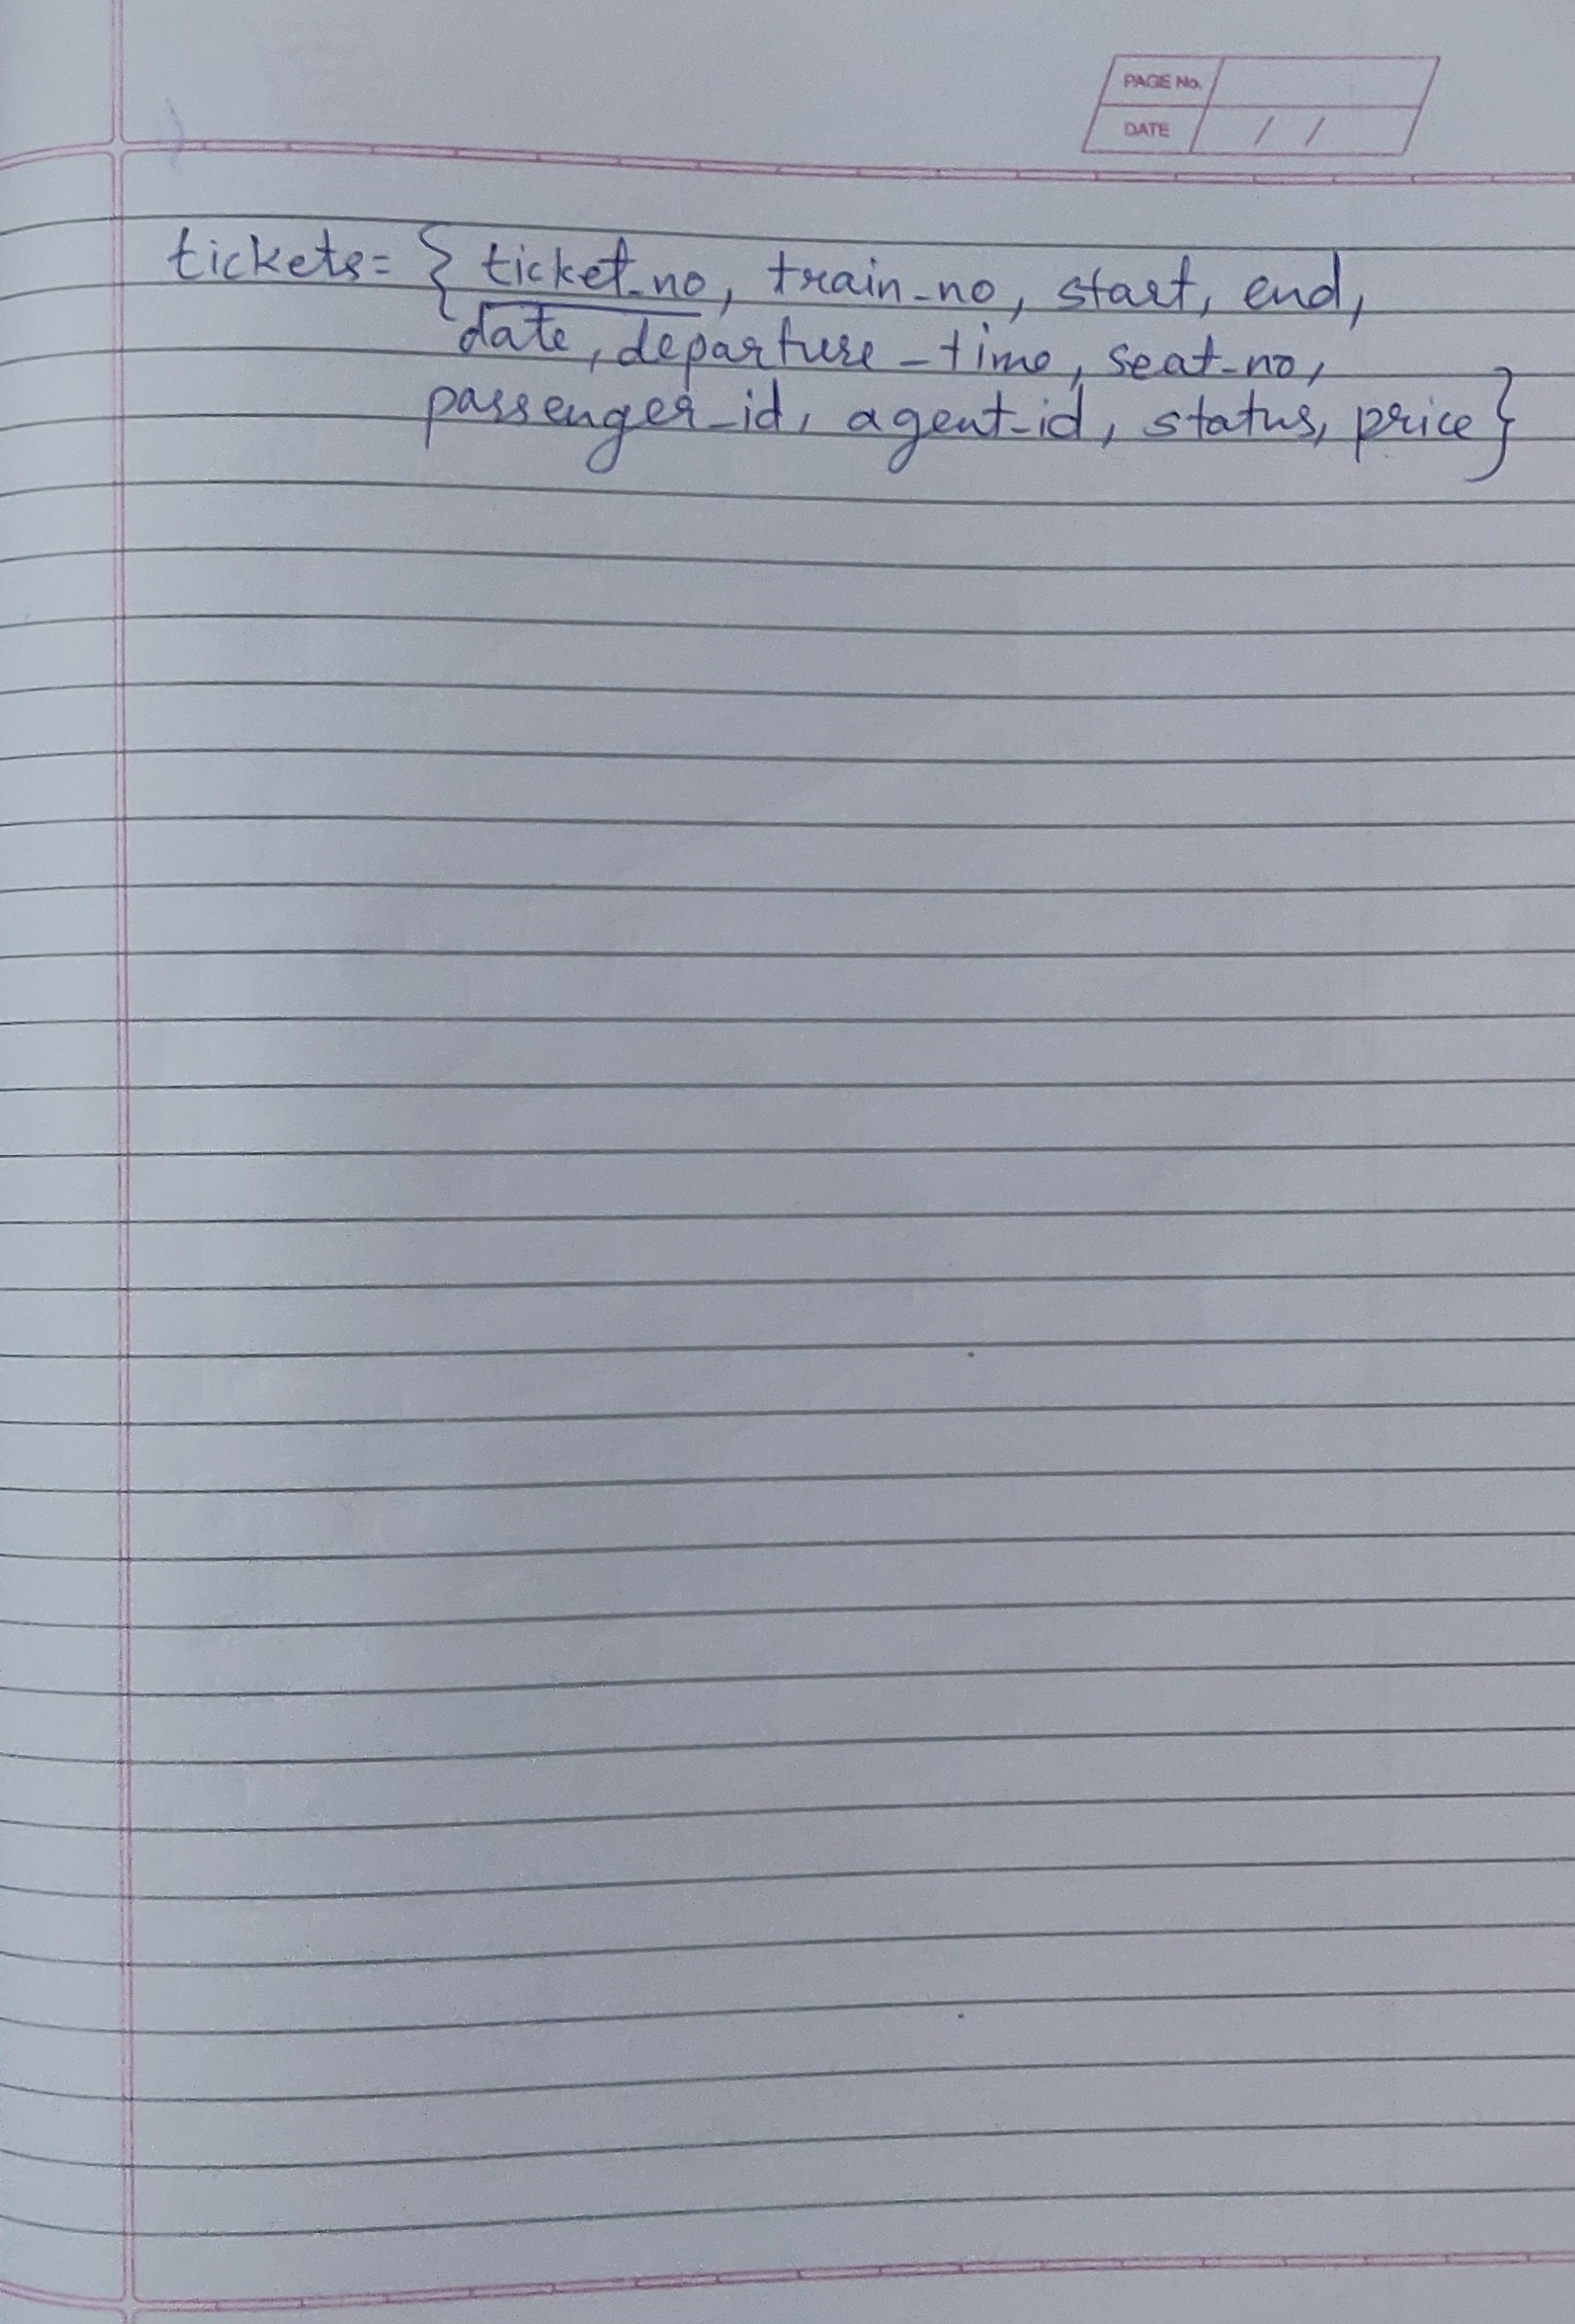 PAGE No.
DATE / /
tickets= { ticket_no, train_no, start, end,
date, departure_time, seat_no,
passenger_id, agent_id, status, price}